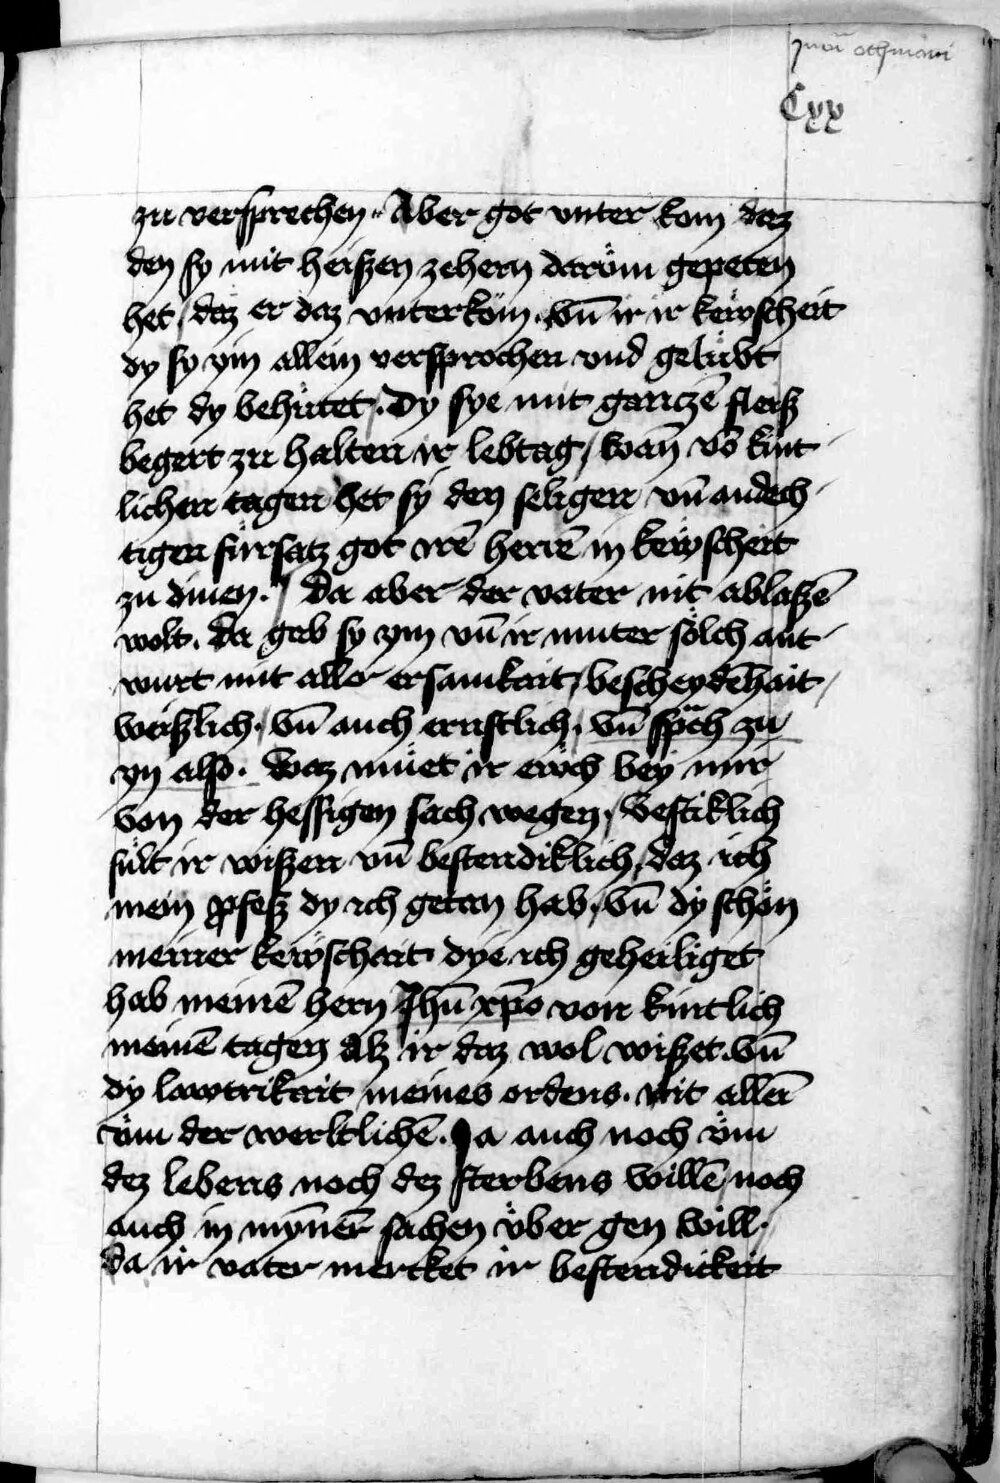 Cxx
zu versprechen. Aber got unter kom daz
den sy mit heiszen zehern daröm gepeten
het / daz er daz unterköm. Vn̄ ir ir kewscheit
dy sy ym allein versprochen vnd gelübt
het dy behütet. Dy sye mit ganczē fleisz
begert zu halten ir lebtag / wan̄ vō kint
lichen tagen het sy den seligen vn̄ andech
tigen fürsatz got irē herrē in kewscheit
zu dinen. Da aber der vater nit ablaszē
wolt. Da gab sy ym vn̄ ir muter sölch ant
wurt mit aller ersamkait / bescheydēhait /
weiszlich. Vn̄ auch ernstlich. vn̄ spͣch zu
yn also. Waz müet ir ewch bey mir
von der hessigen sach wegen / Vestiklich
sült ir wiszen vn̄ bestendiklich, daz ich
mein pfesz dy ich getan hab, Vn̄ dy schön
meiner kewschait dye ich geheiliget
hab meinē hern Jhū xp̄o von kintlich
meinē tagen Alz ir daz wol wiszet. Vn̄
dy lawtrikait meines ordens. nit allein
vöm der werltlichē. Ja auch noch vöm
dez lebens noch dez sterbens willē noch
auch in mȳner sachen über gen will.
Da ir vater mercket ir bestendickeit